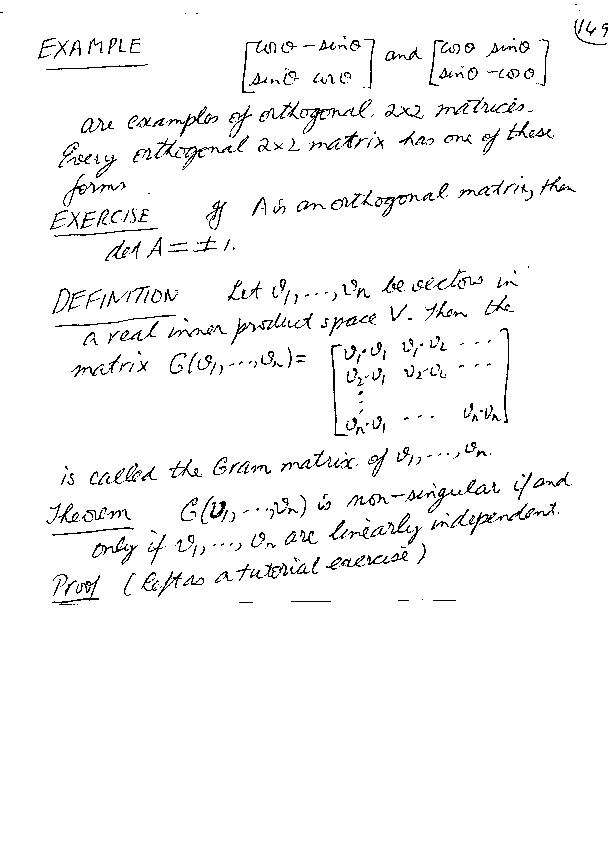 149
EXAMPLE [cosθ -sinθ; sinθ cosθ] and [cosθ sinθ; sinθ -cosθ]
are examples of orthogonal 2×2 matrices.
Every orthogonal 2×2 matrix has one of these
forms
EXERCISE If A is an orthogonal matrix, then
det A = ±1.
DEFINITION Let v₁, ..., vₙ be vectors in
a real inner product space V. Then the
matrix G(v₁, ..., vₙ) = [v₁·v₁ v₁·v₂ ...
v₂·v₁ v₂·v₂ ...
⋮
vₙ·v₁ ... vₙ·vₙ]
is called the Gram matrix of v₁, ..., vₙ.
Theorem G(v₁, ..., vₙ) is non-singular if and
only if v₁, ..., vₙ are linearly independent.
Proof (Left as a tutorial exercise)